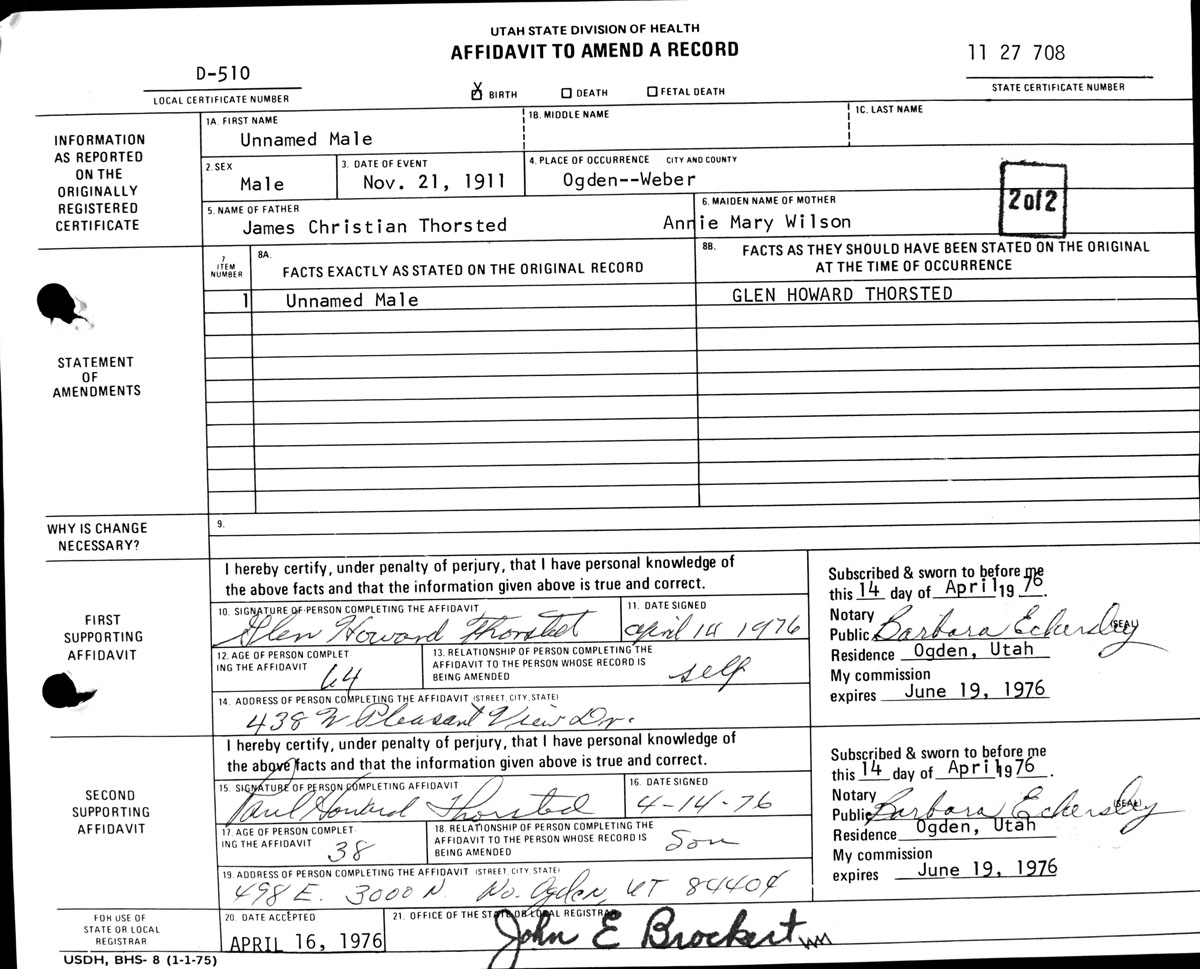 UTAH STATE DIVISION OF HEALTH
AFFIDAVIT TO AMEND A RECORD
11 27 708
STATE CERTIFICATE NUMBER
D-510
LOCAL CERTIFICATE NUMBER
X BIRTH DEATH FETAL DEATH
INFORMATION
AS REPORTED
ON THE
ORIGINALLY
REGISTERED
CERTIFICATE
1A. FIRST NAME 1B. MIDDLE NAME 1C. LAST NAME
Unnamed Male
2. SEX 3. DATE OF EVENT 4. PLACE OF OCCURRENCE CITY AND COUNTY
Male Nov. 21, 1911 Ogden--Weber
2 of 2
5. NAME OF FATHER 6. MAIDEN NAME OF MOTHER
James Christian Thorsted Annie Mary Wilson
STATEMENT
OF
AMENDMENTS
7
ITEM
NUMBER
8A.
FACTS EXACTLY AS STATED ON THE ORIGINAL RECORD
8B. FACTS AS THEY SHOULD HAVE BEEN STATED ON THE ORIGINAL
AT THE TIME OF OCCURRENCE
1 Unnamed Male GLEN HOWARD THORSTED
WHY IS CHANGE
NECESSARY?
9.
FIRST
SUPPORTING
AFFIDAVIT
I hereby certify, under penalty of perjury, that I have personal knowledge of
the above facts and that the information given above is true and correct.
10. SIGNATURE OF PERSON COMPLETING THE AFFIDAVIT 11. DATE SIGNED
Glen Howard Thorsted april 14 1976
12. AGE OF PERSON COMPLET
ING THE AFFIDAVIT
64
13. RELATIONSHIP OF PERSON COMPLETING THE
AFFIDAVIT TO THE PERSON WHOSE RECORD IS
BEING AMENDED
self
14. ADDRESS OF PERSON COMPLETING THE AFFIDAVIT (STREET, CITY, STATE)
438 W Pleasant View Dr.
Subscribed & sworn to before me
this 14 day of April 19 76.
Notary
Public Barbara Eckersley (SEAL)
Residence Ogden, Utah
My commission
expires June 19, 1976
SECOND
SUPPORTING
AFFIDAVIT
I hereby certify, under penalty of perjury, that I have personal knowledge of
the above facts and that the information given above is true and correct.
15. SIGNATURE OF PERSON COMPLETING AFFIDAVIT 16. DATE SIGNED
Paul Howard Thorsted 4-14-76
17. AGE OF PERSON COMPLET
ING THE AFFIDAVIT
38
18. RELATIONSHIP OF PERSON COMPLETING THE
AFFIDAVIT TO THE PERSON WHOSE RECORD IS
BEING AMENDED
Son
19. ADDRESS OF PERSON COMPLETING THE AFFIDAVIT (STREET, CITY, STATE)
498 E. 3000 N. No. Ogden, UT 84404
Subscribed & sworn to before me
this 14 day of April 1976.
Notary
Public Barbara Eckersley (SEAL)
Residence Ogden, Utah
My commission
expires June 19, 1976
FOR USE OF
STATE OR LOCAL
REGISTRAR
20. DATE ACCEPTED
APRIL 16, 1976
21. OFFICE OF THE STATE OR LOCAL REGISTRAR
John E Brockert
USDH, BHS- 8 (1-1-75)